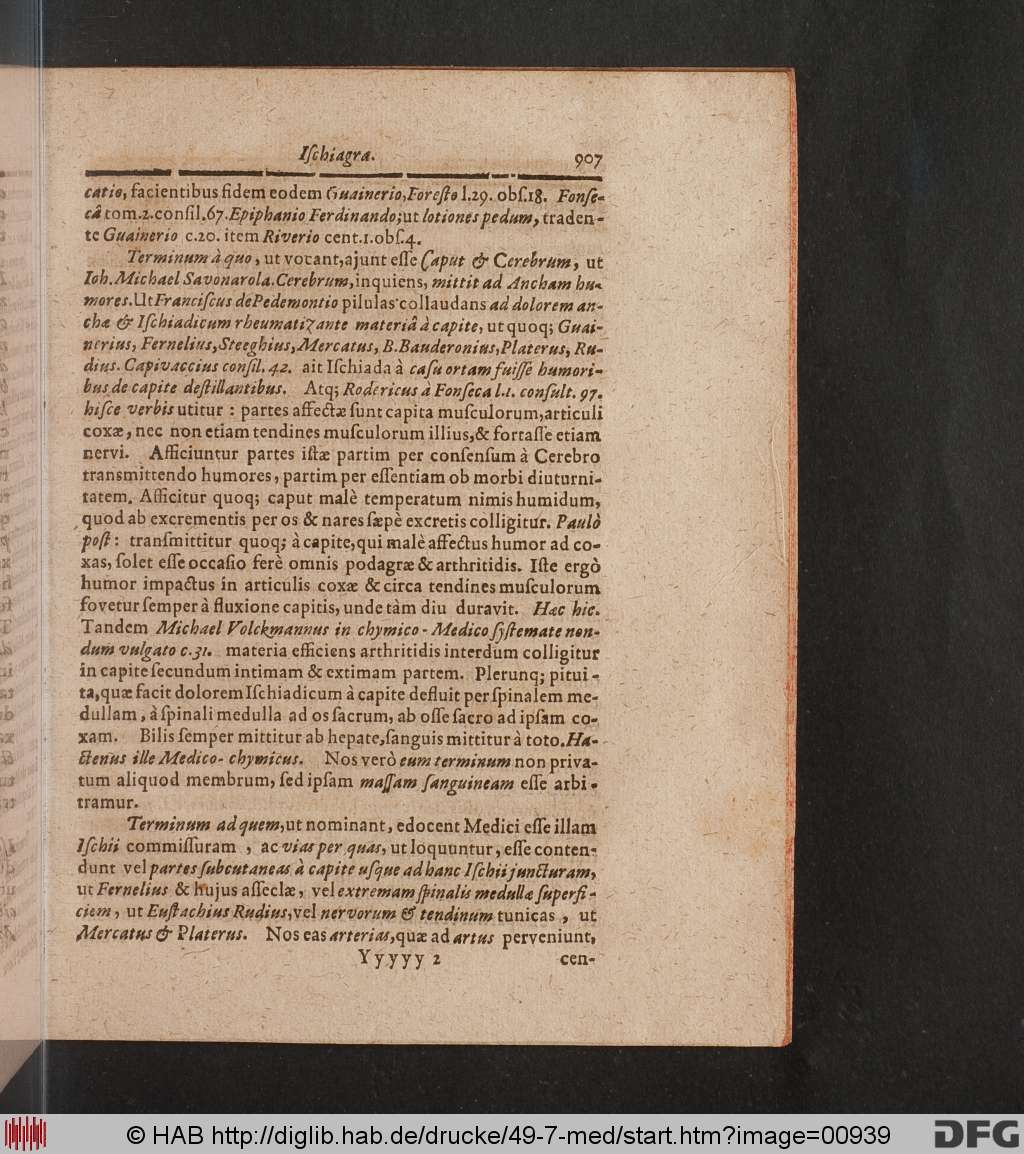 Iſchiagra. 907
catio, facientibus fidem eodem Guainerio, Foreſto l.29. obſ.18. Fonſe-
câ tom.2.conſil.67.Epiphanio Ferdinando;ut lotiones pedum, traden-
te Guainerio c.20. item Riverio cent.1.obſ.4.
Terminum à quo, ut vocant,ajunt eſſe Caput & Cerebrum, ut
Ioh. Michael Savonarola.Cerebrum,inquiens, mittit ad Ancham hu-
mores.Ut Franciſcus de Pedemontio pilulas collaudans ad dolorem an-
chæ & Iſchiadicum rheumatizante materiâ à capite, ut quoq; Guai-
nerius, Fernelius, Steeghius, Mercatus, B.Bauderonius, Platerus, Ru-
dius. Capivaccius conſil. 42. ait Iſchiada à caſu ortam fuiſſe humori-
bus de capite deſtillantibus. Atq; Rodericus à Fonſeca l.1. conſult. 97.
hiſce verbis utitur : partes affectæ ſunt capita muſculorum,articuli
coxæ, nec non etiam tendines muſculorum illius,& fortaſſe etiam
nervi. Afficiuntur partes iſtæ partim per conſenſum à Cerebro
transmittendo humores, partim per eſſentiam ob morbi diuturni-
tatem. Afficitur quoq; caput malè temperatum nimis humidum,
quod ab excrementis per os & nares ſæpè excretis colligitur. Paulò
poſt : tranſmittitur quoq; à capite,qui malè affectus humor ad co-
xas, ſolet eſſe occaſio ferè omnis podagræ & arthritidis. Iſte ergò
humor impactus in articulis coxæ & circa tendines muſculorum
fovetur ſemper à fluxione capitis, unde tàm diu duravit. Hæc hic.
Tandem Michael Volckmannus in chymico - Medico ſyſtemate non-
dum vulgato c.31. materia efficiens arthritidis interdum colligitur
in capite ſecundum intimam & extimam partem. Plerunq; pitui-
ta,quæ facit dolorem Iſchiadicum à capite defluit per ſpinalem me-
dullam, à ſpinali medulla ad os ſacrum, ab oſſe ſacro ad ipſam co-
xam. Bilis ſemper mittitur ab hepate,ſanguis mittitur à toto.Ha-
ctenus ille Medico- chymicus. Nos verò eum terminum non priva-
tum aliquod membrum, ſed ipſam maſſam ſanguineam eſſe arbi-
tramur.
Terminum ad quem,ut nominant, edocent Medici eſſe illam
Iſchii commiſſuram , ac vias per quas, ut loquuntur, eſſe conten-
dunt vel partes ſubcutaneas à capite uſque ad hanc Iſchii juncturam,
ut Fernelius & hujus aſſeclæ, vel extremam ſpinalis medullæ ſuperfi-
ciem, ut Euſtachius Rudius,vel nervorum & tendinum tunicas , ut
Mercatus & Platerus. Nos eas arterias,quæ ad artus perveniunt,
Yyyyy 2 cen-
© HAB http://diglib.hab.de/drucke/49-7-med/start.htm?image=00939
DFG